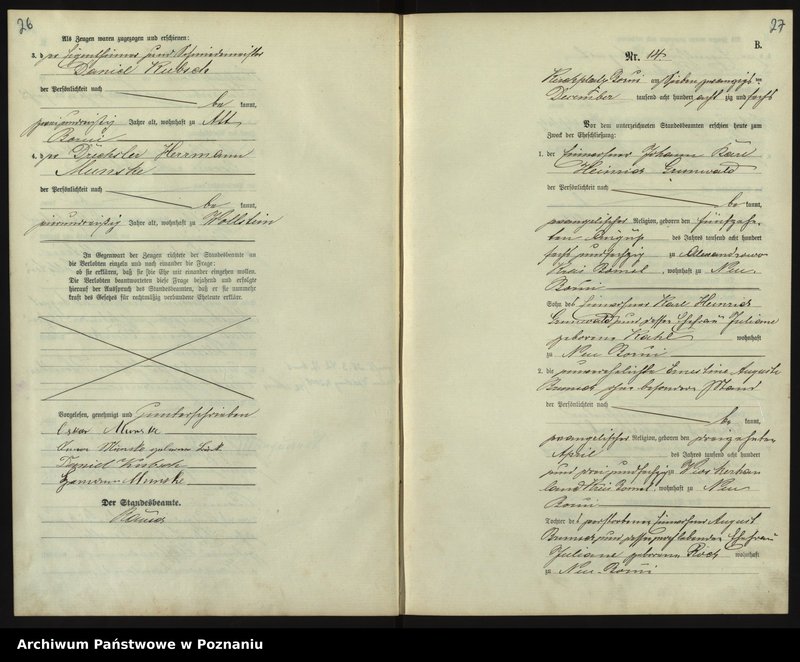 26
Als Zeugen waren zugezogen und erschienen:
3. der Eigenthümer und Schmiedemeister
Daniel Kubsch
der Persönlichkeit nach
be kannt,
Jahre alt, wohnhaft zu Alt
Borui
4. der Drechsler Herrmann
Munske
der Persönlichkeit nach
be kannt,
vierunddreißig Jahre alt, wohnhaft zu Wollstein
In Gegenwart der Zeugen richtete der Standesbeamte an
die Verlobten einzeln und nach einander die Frage:
ob sie erklären, daß sie die Ehe mit einander eingehen wollen.
Die Verlobten beantworteten diese Frage bejahend und erfolgte
hierauf der Ausspruch des Standesbeamten, daß er sie nunmehr
kraft des Gesetzes für rechtmäßig verbundene Eheleute erkläre.
Vorgelesen, genehmigt und unterschrieben
Oskar Munske
Munske geborene
Daniel Kubsch
Hermann Munske
Der Standesbeamte.
27
B.
Nr. 14.
Kirchplatz Borui am sieben zwanzigsten
December tausend acht hundert acht zig und sechs
Vor dem unterzeichneten Standesbeamten erschien heute zum
Zweck der Eheschließung:
1. der Einwohner Johann Karl
Heinrich Grunwald
der Persönlichkeit nach
be kannt,
evangelischer Religion, geboren den fünfzehn
ten August des Jahres tausend acht hundert
sechs und sechzig zu Alexandrowo
Kreis Bomst, wohnhaft zu Neu
Borui
Sohn des Einwohner Karl Heinrich
Grunwald und dessen Ehefrau Juliane
geborene wohnhaft
zu Neu Borui
2. die unverehelichte Ernestine Auguste
ohne besonderen Stand
der Persönlichkeit nach
be kannt,
evangelischer Religion, geboren den dreizehnten
April des Jahres tausend acht hundert
und drei und sechzig zu
land Kreis Bomst, wohnhaft zu Neu
Borui
Tochter des verstorbenen Einwohner August
und dessen noch lebenden Ehefrau
Juliane geborene wohnhaft
zu Neu-Borui
Archiwum Państwowe w Poznaniu